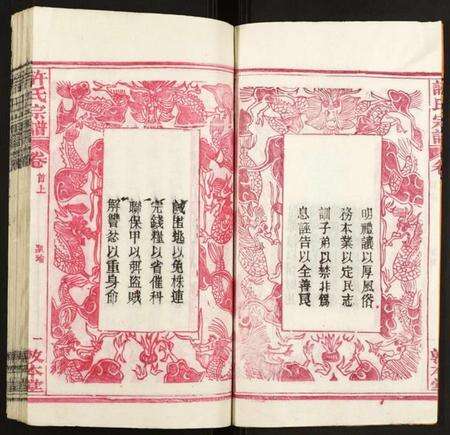 許氏宗譜
卷
明禮讓以厚風俗
務本業以定民志
訓子弟以禁非為
息誣告以全善良
誡匿逃以免株連
完錢糧以省催科
聯保甲以弭盜賊
解讐忿以重身命
許氏宗譜
卷
首上
聖諭
一
敦本堂